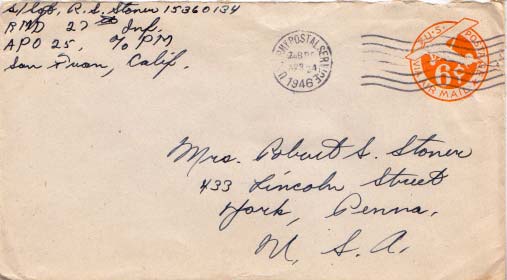 S/Sgt. R. S. Stoner 15360134
RMD 27th Inf.
APO 25, c/o PM
San Fran, Calif.
ARMY POSTAL SERVICE
APR 24
1946
U.S. POSTAGE
6¢
VIA AIR MAIL
Mrs. Robert S. Stoner
433 Lincoln Street
York, Penna.
U. S. A.